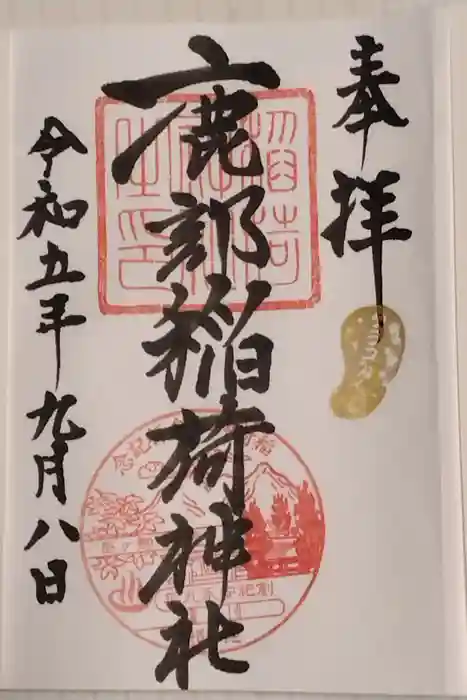 奉拝
鹿部稲荷神社
令和五年九月八日